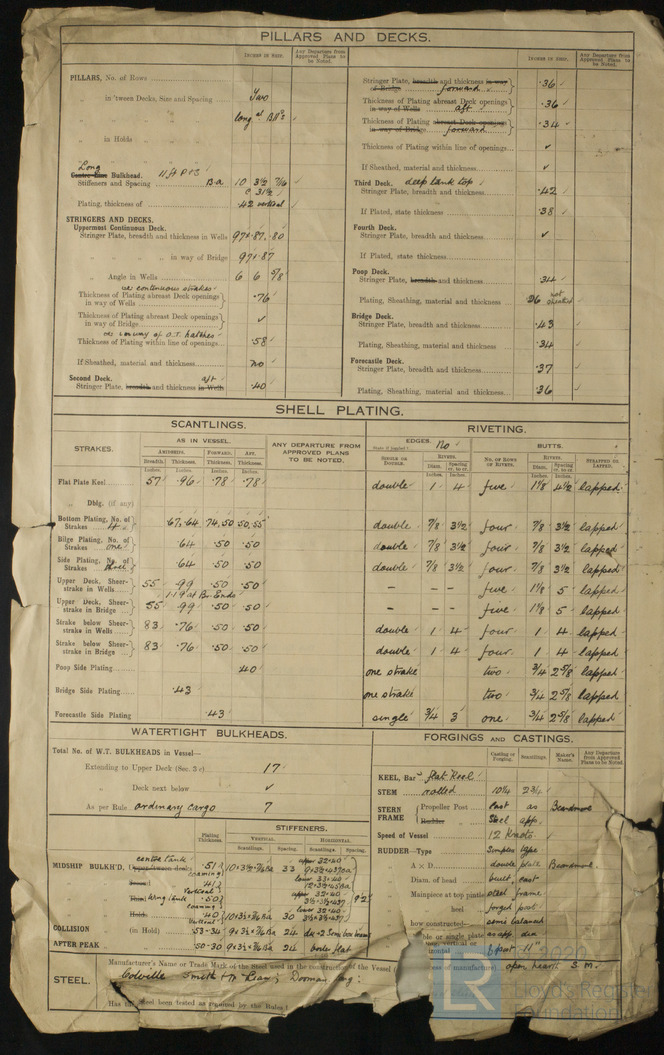 PILLARS AND DECKS.
INCHES IN SHIP.
Any Departure from Approved Plans to be Noted.
PILLARS, No. of Rows
" in 'tween Decks, Size and Spacing Two
" " long'l BH'ds
" in Holds
Long
Centre Line Bulkhead.
Stiffeners and Spacing BA 10 3½ 7/16
Plating, thickness of .42 vertical
STRINGERS AND DECKS.
Uppermost Continuous Deck.
Stringer Plate, breadth and thickness in Wells 97+.87, .80
" " " in way of Bridge 97+.87
" Angle in Wells 6 6 5/8
as continuous strakes
Thickness of Plating abreast Deck openings in way of Wells .76
Thickness of Plating abreast Deck openings in way of Bridge ✓
as in way of O.T. hatches
Thickness of Plating within line of openings .58
If Sheathed, material and thickness no
Second Deck. aft
Stringer Plate, breadth and thickness in Wells .40
INCHES IN SHIP.
Any Departure from Approved Plans to be Noted.
Stringer Plate, breadth and thickness in way of Bridge forward .36
Thickness of Plating abreast Deck openings in way of Wells aft .36
Thickness of Plating abreast Deck openings in way of Bridge forward .34
Thickness of Plating within line of openings ✓
If Sheathed, material and thickness ✓
Third Deck. deep tank top
Stringer Plate, breadth and thickness .42
If Plated, state thickness .38
Fourth Deck.
Stringer Plate, breadth and thickness ✓
If Plated, state thickness
Poop Deck.
Stringer Plate, breadth and thickness .34
Plating, Sheathing, material and thickness .36 not sheathed
Bridge Deck.
Stringer Plate, breadth and thickness .43
Plating, Sheathing, material and thickness .34
Forecastle Deck.
Stringer Plate, breadth and thickness .37
Plating, Sheathing, material and thickness .36
SHELL PLATING.
SCANTLINGS.
RIVETING.
STRAKES.
AS IN VESSEL.
AMIDSHIPS. FORWARD. AFT.
Breadth Thickness. Thickness. Thickness.
Inches. Inches. Inches. Inches.
ANY DEPARTURE FROM APPROVED PLANS TO BE NOTED.
EDGES. No
State if joggled
SINGLE OR DOUBLE.
RIVETS.
Diam. Spacing cr. to cr.
BUTTS.
NO. OF ROWS OF RIVETS.
RIVETS.
Diam. Spacing cr. to cr.
STRAPPED OR LAPPED.
Flat Plate Keel 57 .96 .78 .78 double 1 4 five 1⅛ 4½ lapped
" Dblg. (if any)
Bottom Plating, No. of Strakes .67,.64 .74,.50 .50,.55 double 7/8 3½ four 7/8 3½ lapped
Bilge Plating, No. of Strakes one .64 .50 .50 double 7/8 3½ four 7/8 3½ lapped
Side Plating, No. of Strakes three .64 .50 .50 double 7/8 3½ four 7/8 3½ lapped
Upper Deck, Sheer-strake in Wells 55 .99 .50 .50 – – five 1⅛ 5 lapped
1.19 at Br. Ends
Upper Deck, Sheer-strake in Bridge 55 .99 .50 .50 – – five 1⅛ 5 lapped
Strake below Sheer-strake in Wells 83 .76 .50 .50 double 1 4 four 1 4 lapped
Strake below Sheer-strake in Bridge 83 .76 .50 .50 double 1 4 four 1 4 lapped
Poop Side Plating .40 one strake two ¾ 2⅝ lapped
Bridge Side Plating .43 one strake two ¾ 2⅝ lapped
Forecastle Side Plating .43 single ¾ 3 one ¾ 2⅝ lapped
WATERTIGHT BULKHEADS.
Total No. of W.T. BULKHEADS in Vessel—
Extending to Upper Deck (Sec. 3 c) 17
" Deck next below ✓
As per Rule ordinary cargo 7
STIFFENERS.
Plating Thickness
VERTICAL. HORIZONTAL.
Scantlings. Spacing. Scantlings. Spacing.
centre tank
MIDSHIP BULKH'D, .51 10×3½×7/16 BA 33
Wing tank .50
Hold .40 10×3½×7/16 BA 30
COLLISION (in Hold) .53-.34 9×3½×7/16 BA 24
AFTER PEAK " .50-.30 9×3½×7/16 BA 24 boiler flat
FORGINGS AND CASTINGS.
Casting or Forging. Scantlings. Maker's Name. Any Departure from Approved Plans to be Noted.
KEEL, Bar flat keel
STEM rolled 10¼ 2¾
STERN FRAME
Propeller Post cast as Beardmore
Rudder " Steel app.
Speed of Vessel 12 Knots
RUDDER—Type Simplex type
" A × D double plate Beardmore
" Diam. of head built, cast
Mainpiece at top pintle steel frame
" heel forged post
how constructed semi balanced
double or single plate as app. dia
b post 11"
STEEL.
Manufacturer's Name or Trade Mark of the Steel used in the construction of the Vessel
ess of manufacture) open hearth S M
Colville Smith & Mc Lean; Dorman Long
Has the Steel been tested as required by the Rules
© 2020
LR
Lloyd's Register
Foundation